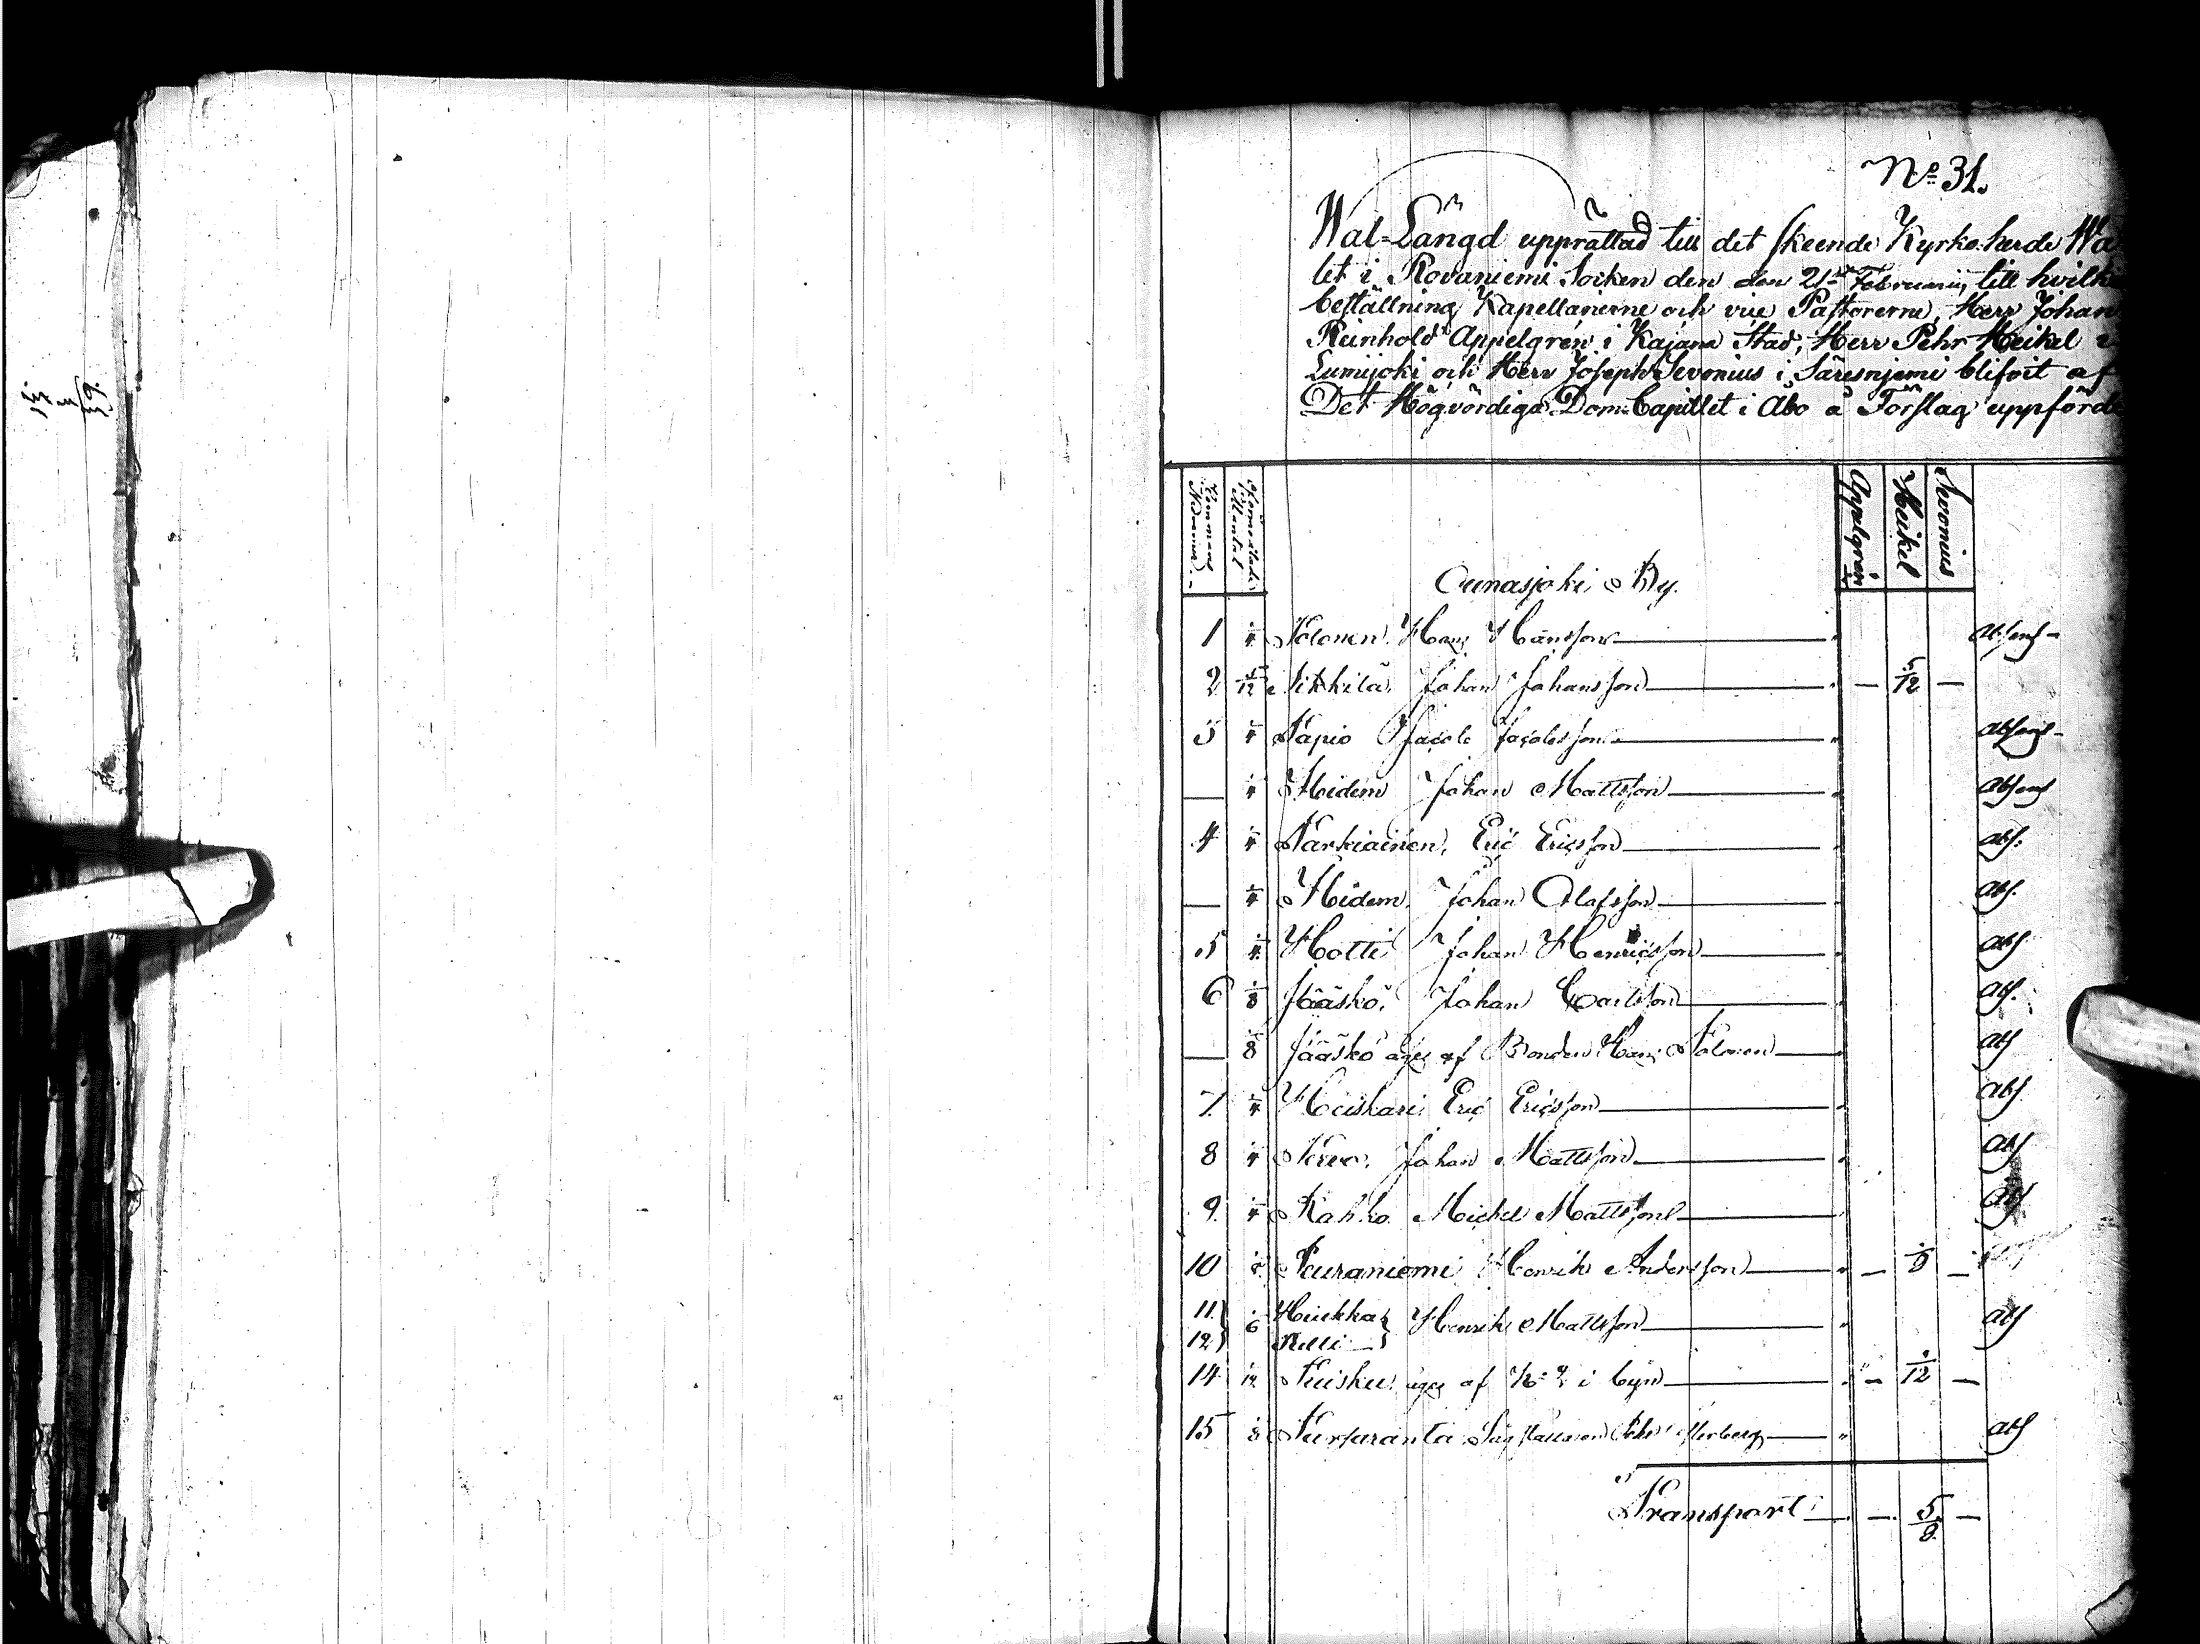 No 31.
Wal-Längd upprättad till det skeende Kyrko herde Wa
let i Rovaniemi Socken den den 21sta Februarii, till hvilk
beställning Kapellanerne och vice Pastorerne, Herr Johan
Reinhold Appelgrén i Kajana Stad, Herr Pehr Heikel i
Lumijoki och Herr Joseph Sevonius i Säresnjemi blifvit af
Det Högvördiga Dom-Capitlet i Åbo å Förslag uppförd
Hemmans Nummer
Öfversatte Mantal
Ounasjoki By.
Appelgrén
Heikel
Sevonius
1 1/4 Hans Hansson Absens
2 5/12 Sihkila, Johan Johansson — 5/12 —
3 1/4 Tapio Jacob Jacobsson Absens
— 1/4 Ibidem Johan Mattsson Absens
4 1/4 Narkiainen, Eric Ericsson Abs:
— 1/4 Ibidem, Johan Olafsson Abs.
5 1/4 Hotti Johan Henricsson Abs
6 1/8 Jääskö, Johan Carlsson Abs.
— 1/8 Jääskö äges af Bonden Hans Abs
7. 1/4 Heiskari Eric Ericsson Abs
8 1/4 Johan Mattsson Abs
9. 1/4 Kahko Michel Mattsson Abs
10 Peuraniemi Henrik Andersson — 1/8 —
11. 12. 1/6 Henrik Mattsson Abs
14 1/12 Puisku äges af No 2 i byn — 1/12 —
15 1/8 Abs
Transport — 5/8 —